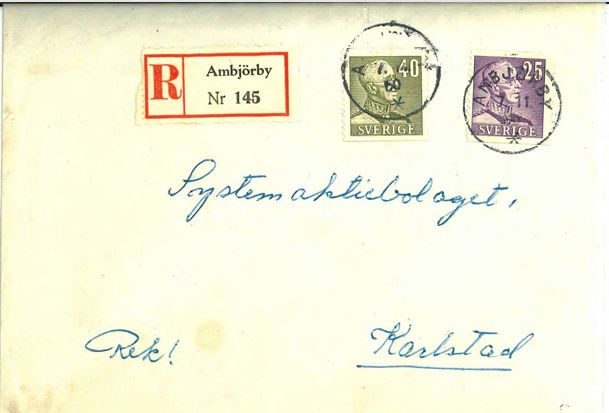 R
Ambjörby
Nr 145
40
SVERIGE
60
25
SVERIGE
AMBJÖRBY
11
Systemaktiebolaget,
Rek!
Karlstad